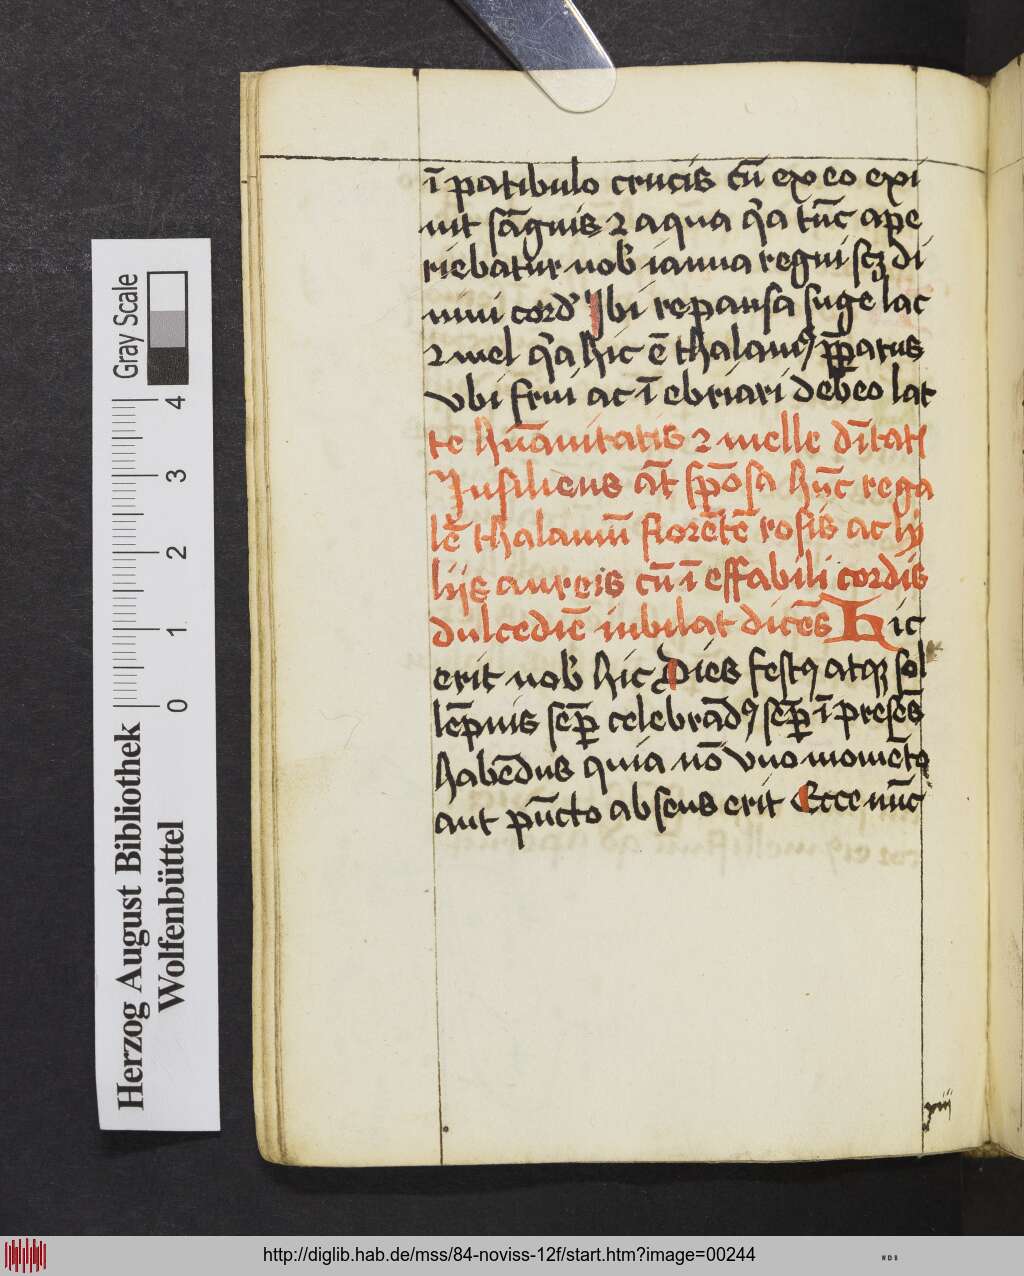 ī patibulo crucis cū ex eo exi
uit sāguis ⁊ aqua qͥa tūc ape
riebatur nob̛ ianua regni scꝫ di
uini cord̛ Ibi repausa suge lac
⁊ mel qͥa hic ē thalamꝰ p̄paratus
vbi frui ac īebriari debeo lac
te hūanitatis ⁊ melle dītatꝭ
Insiliens āt spōsa hūc rega
lē thalamū florētē rosis ac ly
liis aureis cū īeffabili cordis
dulcediē iubilat dicēs Hic
erit nob̛ hic dies festꝰ atqꝫ sol
lēpnis semꝑ celebrādꝰ semꝑ ī presēs
habēdus quia nō vno momēto
aut pūcto absens erit Ecce nūc
xiij
Herzog August Bibliothek
Wolfenbüttel
Gray Scale
0 1 2 3 4
http://diglib.hab.de/mss/84-noviss-12f/start.htm?image=00244